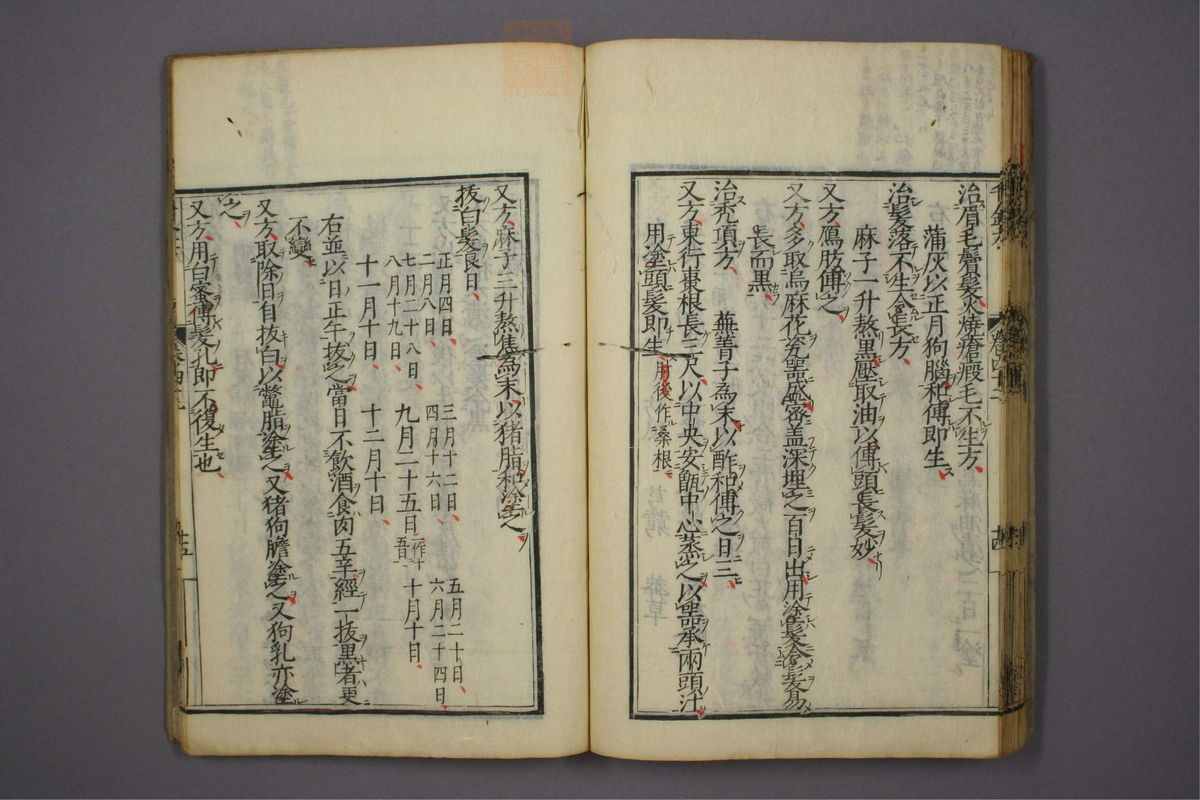 治眉毛鬢髮火燒瘡瘢毛不生方
蒲灰以正月狗腦和傅即生
治髮落不生令長方
麻子一升熬黑壓取油以傅頭長髮妙
又方鴈肪傅之
又方多取烏麻花瓷器盛密盖深埋之百日出用塗髮令髮易
長而黑
治禿頂方　蕪菁子為末以酢和傅之日三
又方東行棗根長三尺以中央安甑中心蒸之以器承兩頭汁
用塗頭髮即生肘後作桑根
又方麻子三升熬焦為末以猪脂和塗之
拔白髮良日
正月四日　三月十二日　五月二十日
二月八日　四月十六日　六月二十四日
七月二十八日　九月二十五日一作十五　十月十日
八月十九日
十一月十日　十二月十日
右並以日正午拔之當日不飲酒食肉五辛經一拔黑者更
不變
又方取除日自拔白以鼈脂塗之又猪狗膽塗之又狗乳亦塗
之
又方用白蜜傅髮孔即不復生也